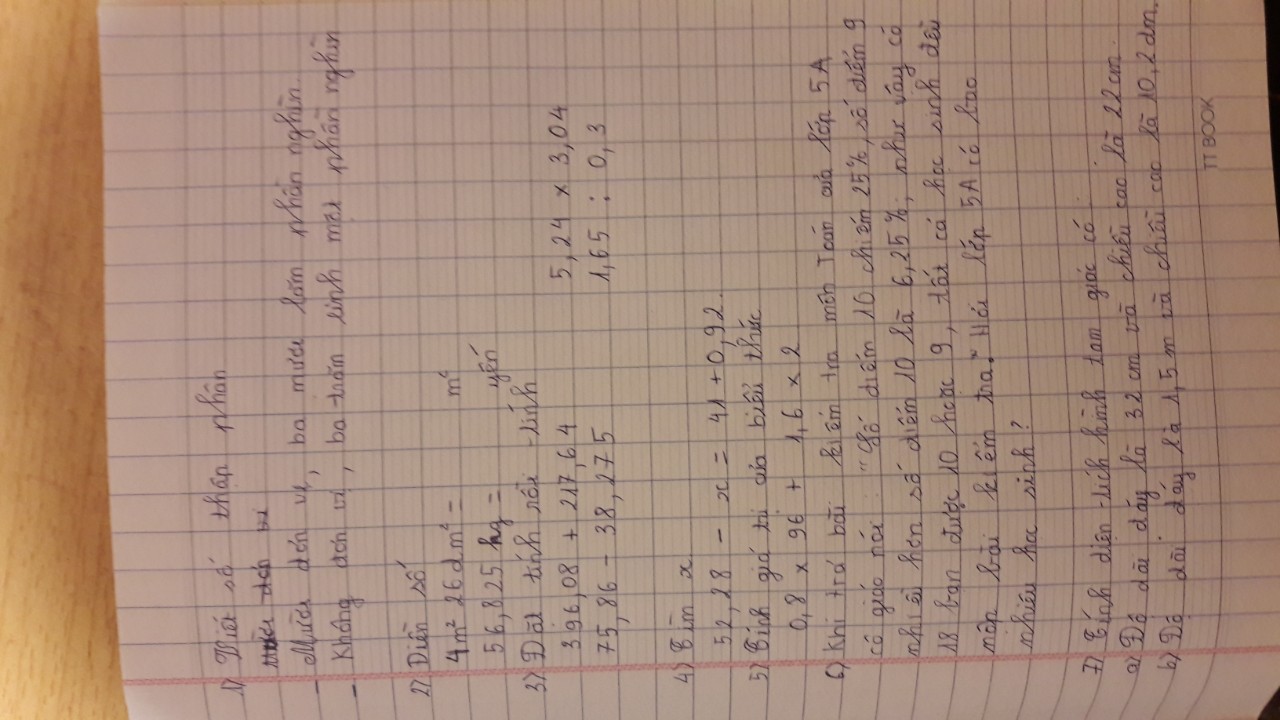 1) Viết số thập phân
- Mười đơn vị, ba mươi lăm phần nghìn.
- Không đơn vị, ba trăm linh một phần nghìn
2) Điền số
4m² 26dm² = m²
56,825 kg = yến
3) Đặt tính rồi tính
396,08 + 217,64 5,24 x 3,04
75,86 - 38,275 1,65 : 0,3
4) Tìm x
52,28 - x = 41 + 0,92.
5) Tính giá trị của biểu thức
0,8 x 96 + 1,6 x 2
6) Khi trả bài kiểm tra môn Toán của lớp 5A
cô giáo nói: "Số điểm 10 chiếm 25%, số điểm 9
nhiều hơn số điểm 10 là 6,25%, như vậy có
18 bạn được 10 hoặc 9, tất cả học sinh đều
nộp bài kiểm tra." Hỏi lớp 5A có bao
nhiêu học sinh?
7) Tính diện tích hình tam giác có:
a) Độ dài đáy là 32 cm và chiều cao là 22 cm.
b) Độ dài đáy là 1,5 m và chiều cao là 10,2 dm.
TT BOOK